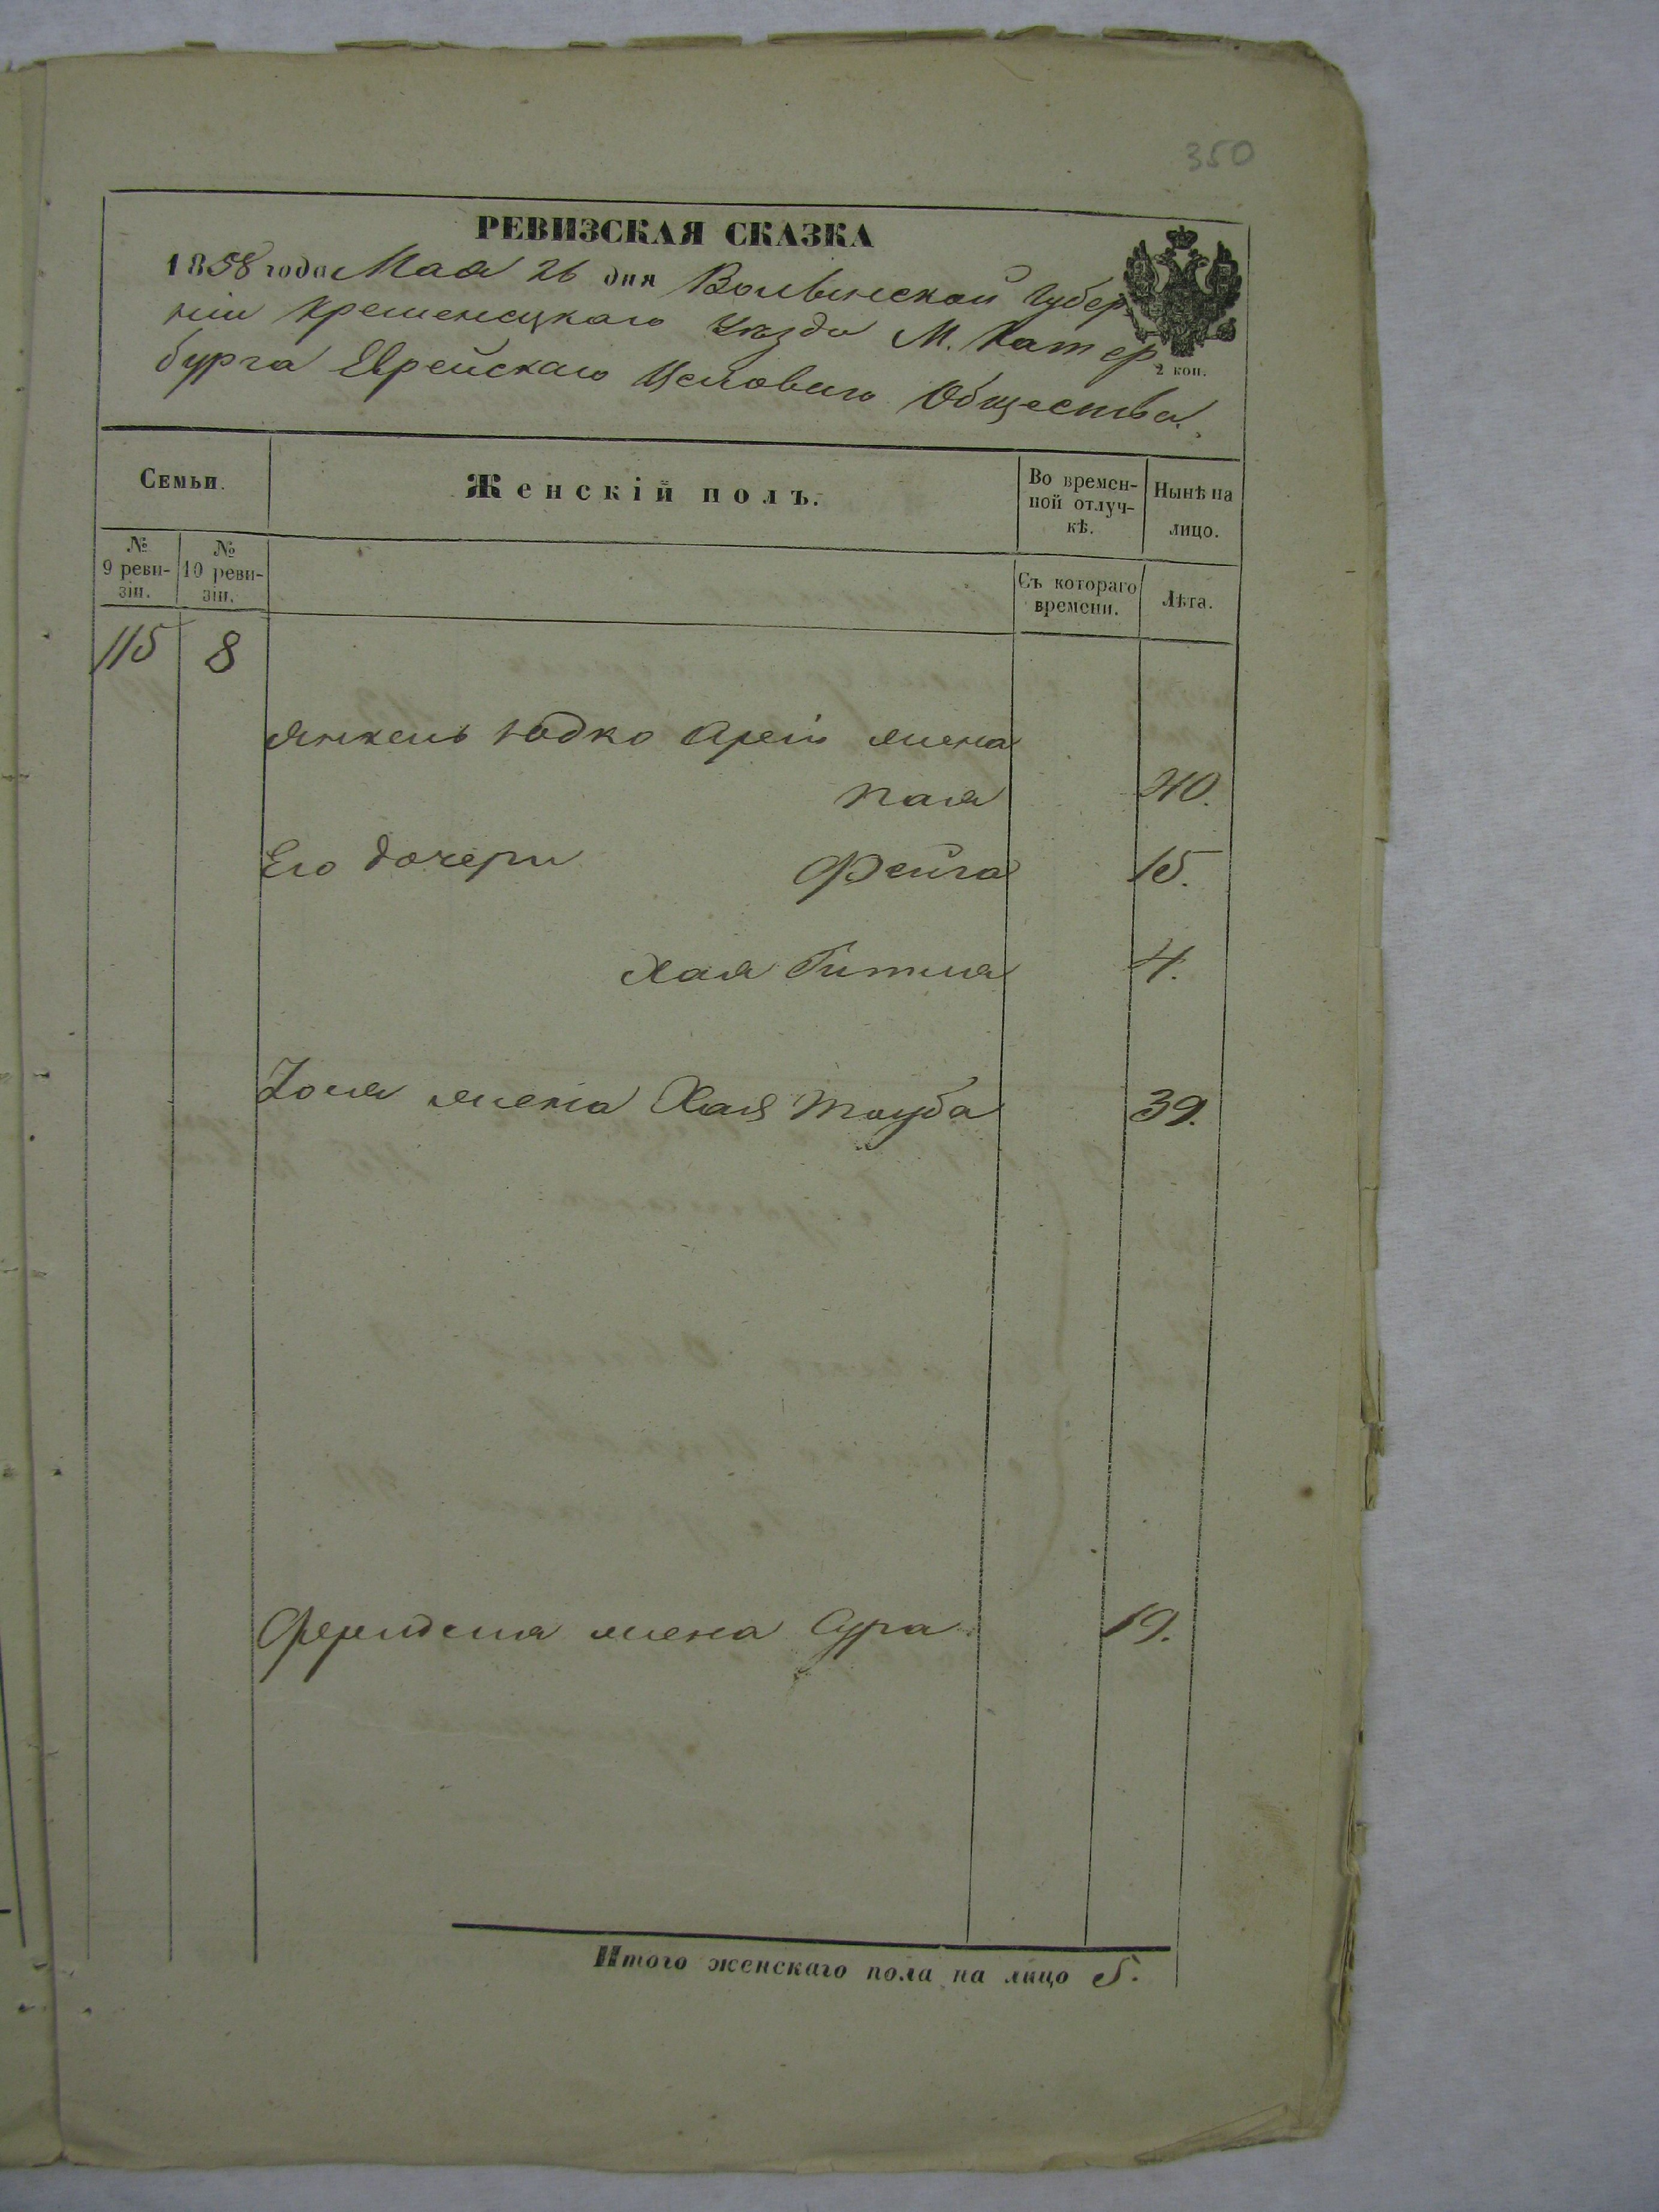 350
РЕВИЗСКАЯ СКАЗКА
1858 года Мая 26 дня Волынской Губер
ніи Кременецкаго Уѣзда М. Катер
бурга Еврейскаго Общества.
2 коп.
Семьи.
Женскій полъ.
Во времен-
ной отлуч-
кѣ.
Нынѣ на
лицо.
№
9 реви-
зіи.
№
10 реви-
зіи.
Съ котораго
времени.
Лѣта.
115 8
Янкель Юдко жена
40.
Его дочери Фейга 15.
Хая Гитля 4.
жена Хая Тауба 39.
жена Сура 19.
Итого женскаго пола на лицо 5.